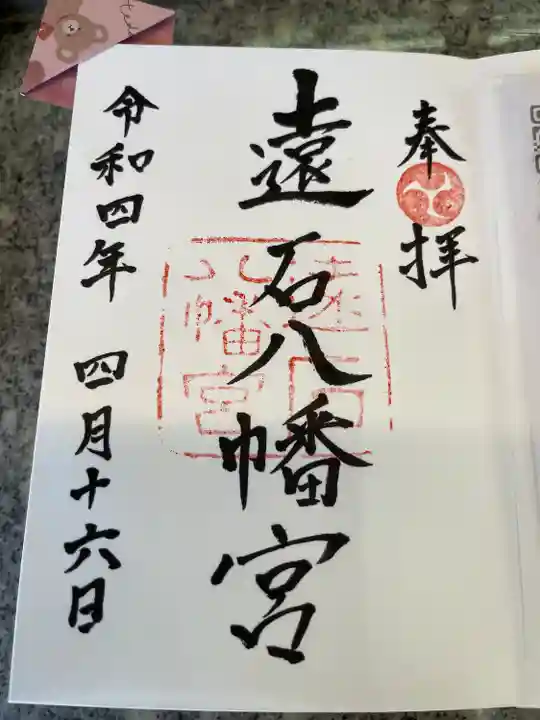 奉拝
遠石八幡宮
遠石
八幡宮
令和四年 四月十六日